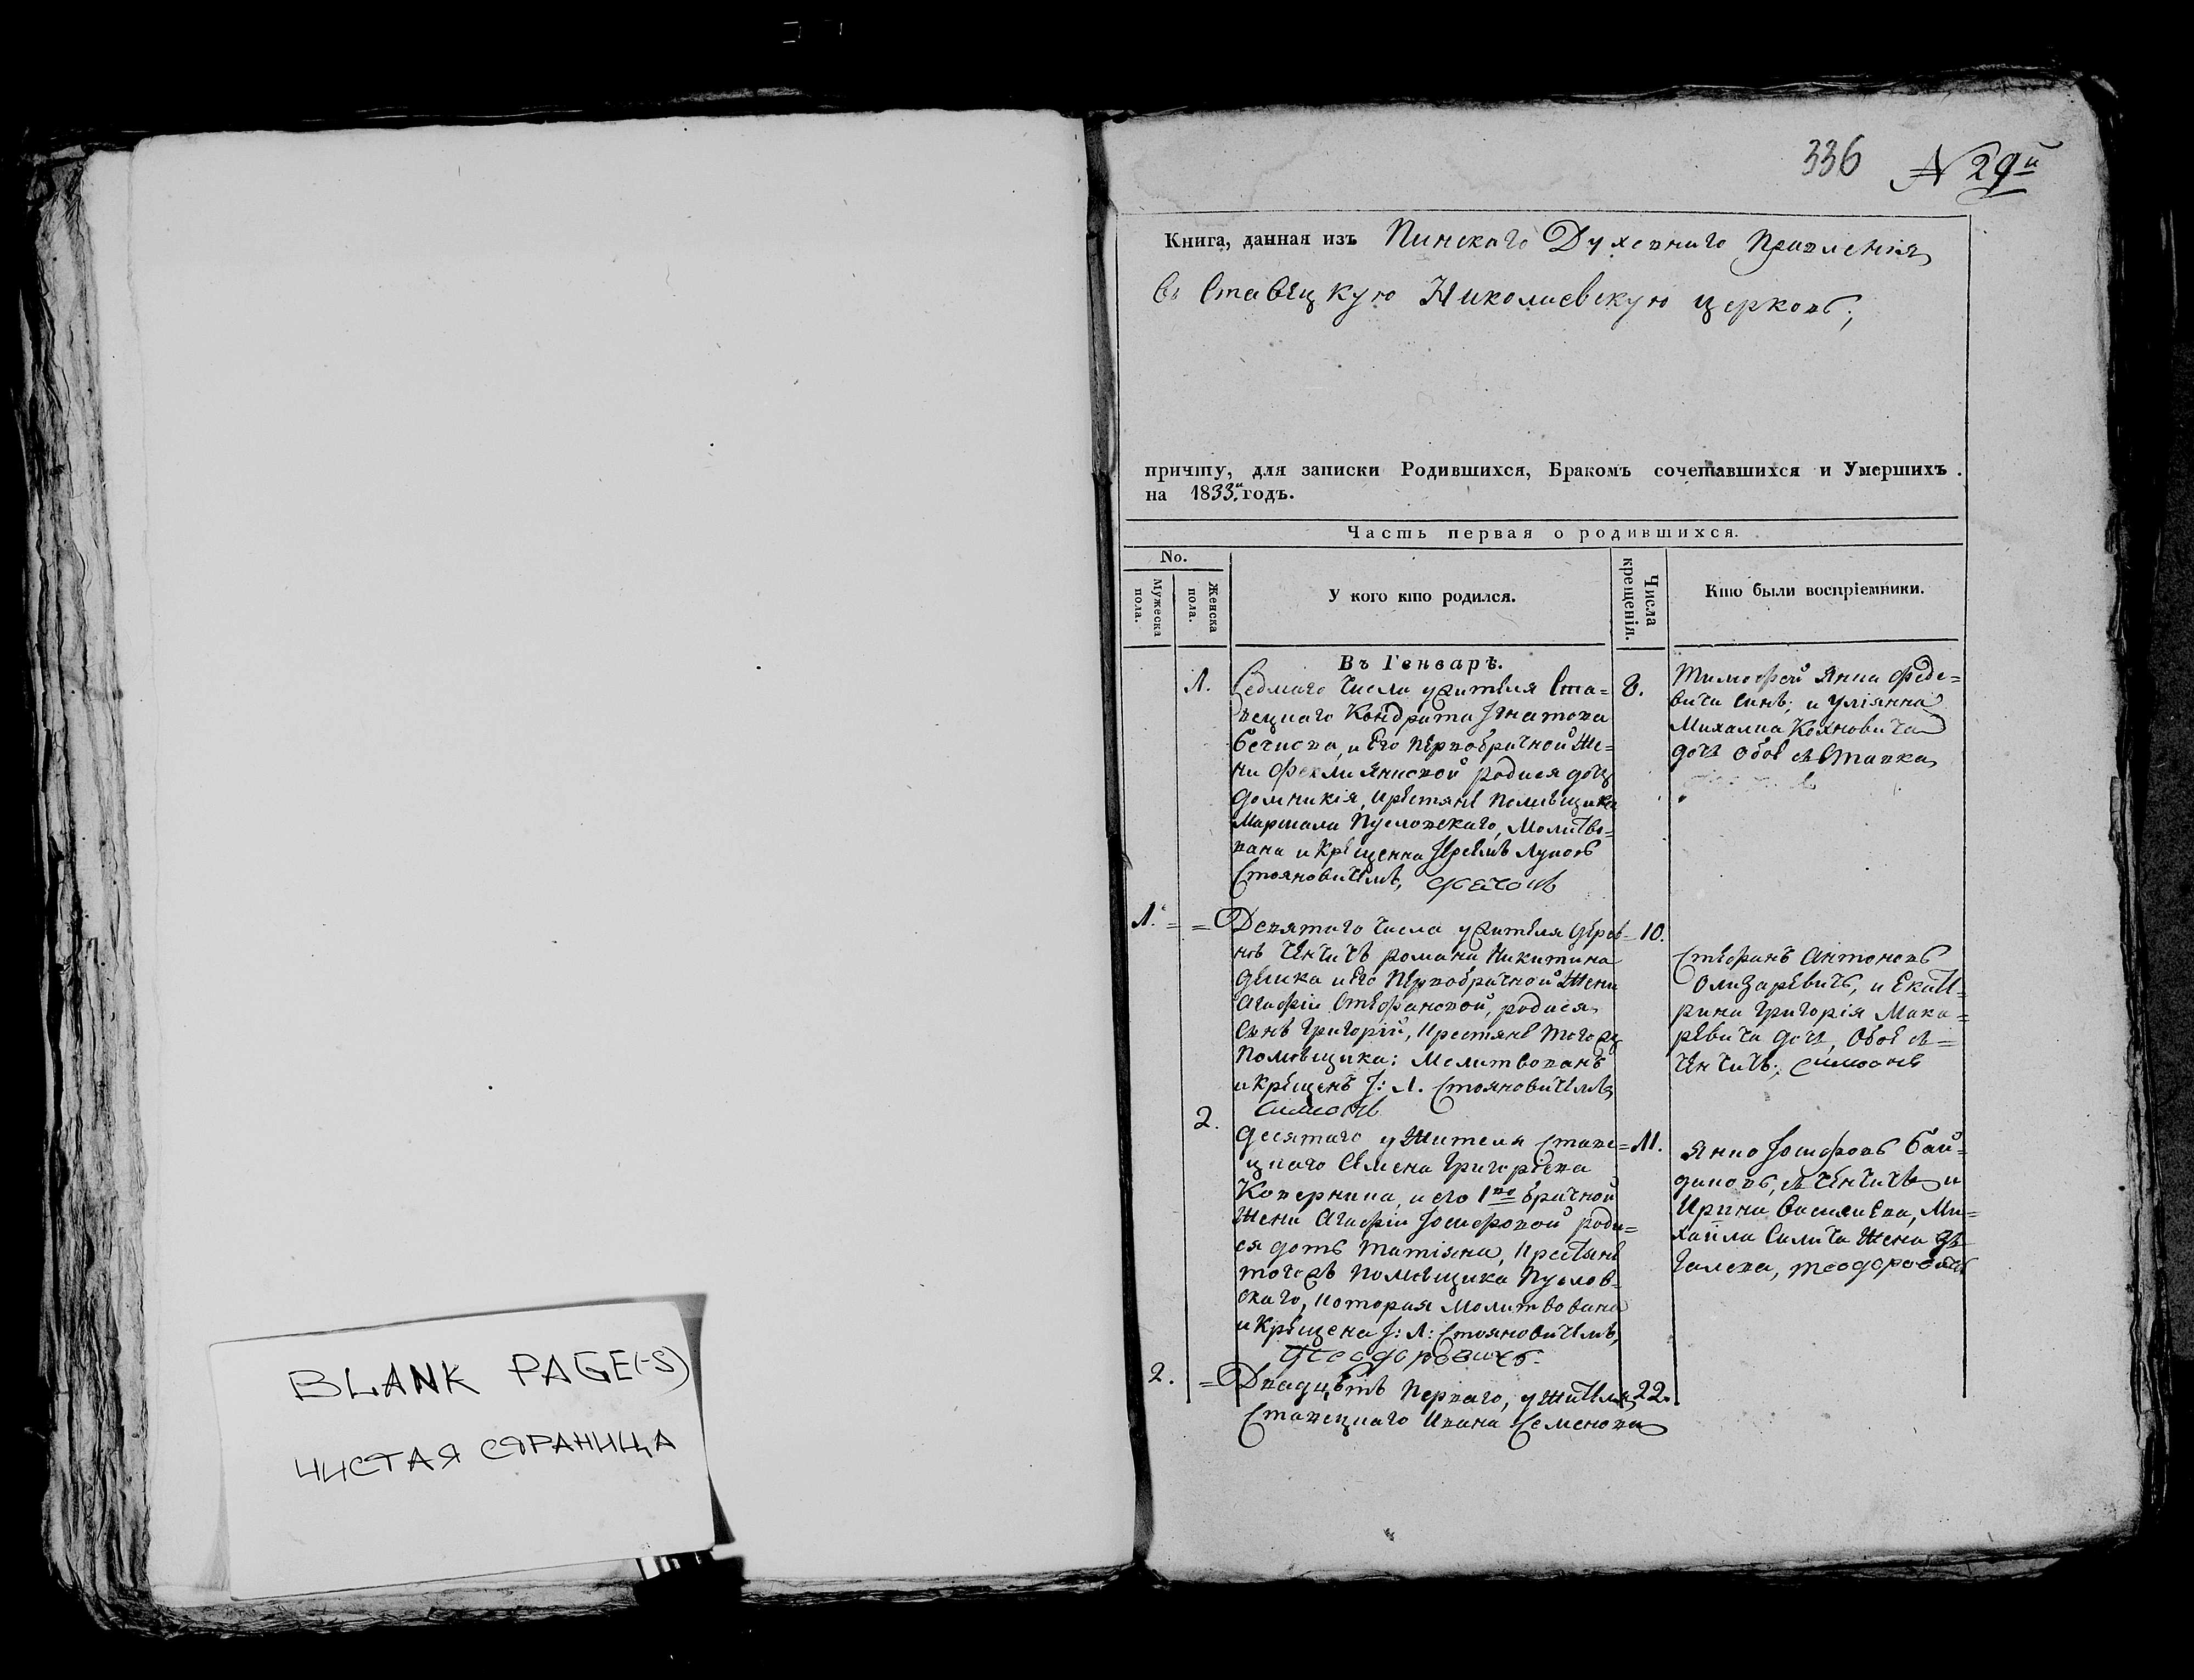 336 N 29й
Книга, данная изъ Пинскаго Духовнаго Правленія
въ Ставецкую Николаевскую церковь;
причту, для записки Родившихся, Бракомъ сочетавшихся и Умершихъ.
на 1833й годъ.
Часть первая о родившихся.
No.
Мужеска пола.
Женска пола.
У кого кто родился.
Числа крещенія.
Кто были воспріемники.
Въ Генварѣ.
1.
Седмаго числа у жителя Ста=
вецкаго Кондрата Игнатова
и его первобрачной же=
ни Феклы родися дочь
Домникія, крестянѣ помѣщика
Маршала Пусловскаго, молитво=
вана и крещенна Іереемъ Лукою
Стояновичемъ,
8.
Тимофей Янка Феде=
вича синъ; и Уліянна
Михалка Кояновича
дочь обоѣ съ Ставка
1. =
= Девятаго числа у жителя дерев=
нѣ Чечичъ Романа Никитина
и его первобрачной жени
Агафіи Стефановой, родися
сынъ Григорій, крестянѣ того жъ
помѣщика: молитвованъ
и крещенъ І: Л. Стояновичемъ
10.
Стефанъ Антоновъ
Олизаревичъ, и Екате=
рина Григорія Мака=
ревича дочь, обоѣ съ=
2.
Десятаго у жителя Ставе=
цкаго Семена Григоріева
и его 1во брачной
жени Агафіи Іосифовой роди=
ся дочь Татіяна, крестянѣ
тогожъ помѣщика Пуслов=
скаго, которая молитвована
и крещена І: Л: Стояновичемъ,
11.
Янко Іосифовъ Бай=
и
Ирина Василіева, Ми=
хайла жена
2.
= Двадцеть перваго, у жителя
Ставецкаго Ивана Семенова
22.
BLANK PAGE(-S)
ЧИСТАЯ СТРАНИЦА